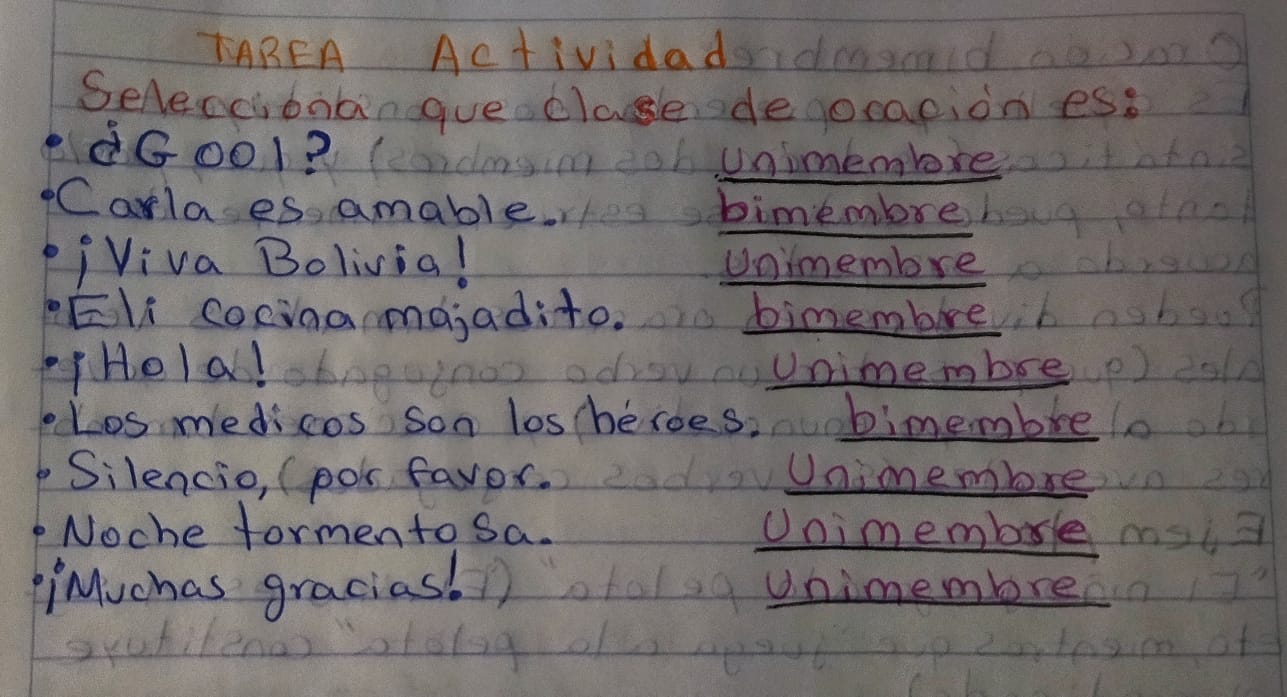 TAREA Actividad
Selecciona que clase de oración es:
• ¿Gool? unimembre
• Carla es amable. bimembre
• ¡Viva Bolivia! Unimembre
• Eli cocina majadito. bimembre
• ¡Hola! Unimembre
• Los medicos son los héroes. bimembre
• Silencio, por favor. Unimembre
• Noche tormentosa. Unimembre
• ¡Muchas gracias! Unimembre